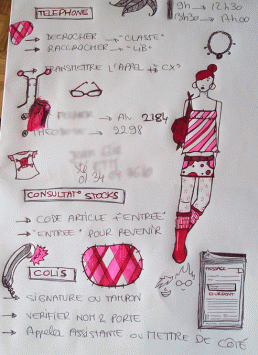 9h → 12h30
13h30 → 17h00
TELEPHONE
→ DECROCHER → "CLASSE"
→ RACCROCHER → "LIB"
→ TRANSMETTRE L'APPEL
→ 2184
→ 2298
CONSULTATº STOCKS
→ CODE ARTICLE + "ENTREE"
→ "ENTREE" POUR REVENIR
COLIS
→ SIGNATURE OU TAMPON
→ VERIFIER NOM & PORTE
→ Appeler ASSISTANTE OU METTRE DE COTÉ
MESSAGE